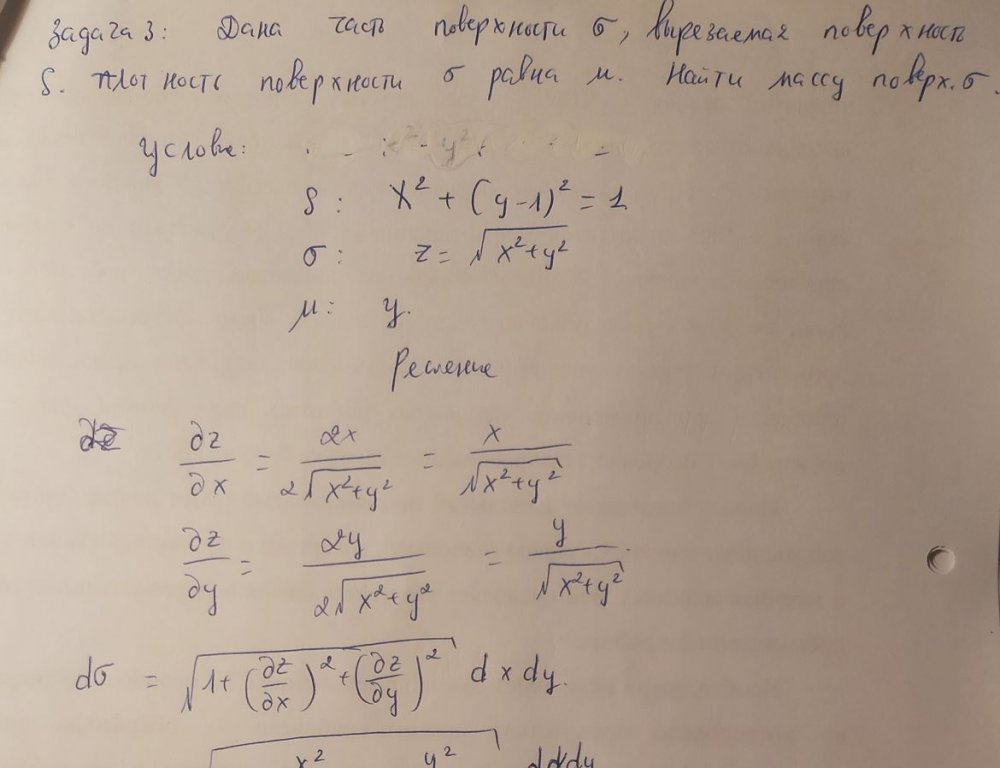 Задача 3: Дана часть поверхности σ, вырезаемая поверхность
S. Плотность поверхности σ равна μ. Найти массу поверх. σ.
Условие:
S: x² + (y-1)² = 1
σ: z = √(x²+y²)
μ: y.
Решение
∂z/∂x = 2x/(2√(x²+y²)) = x/√(x²+y²)
∂z/∂y = 2y/(2√(x²+y²)) = y/√(x²+y²)
dσ = √(1+(∂z/∂x)²+(∂z/∂y)²) dx dy.
x² y² dxdy